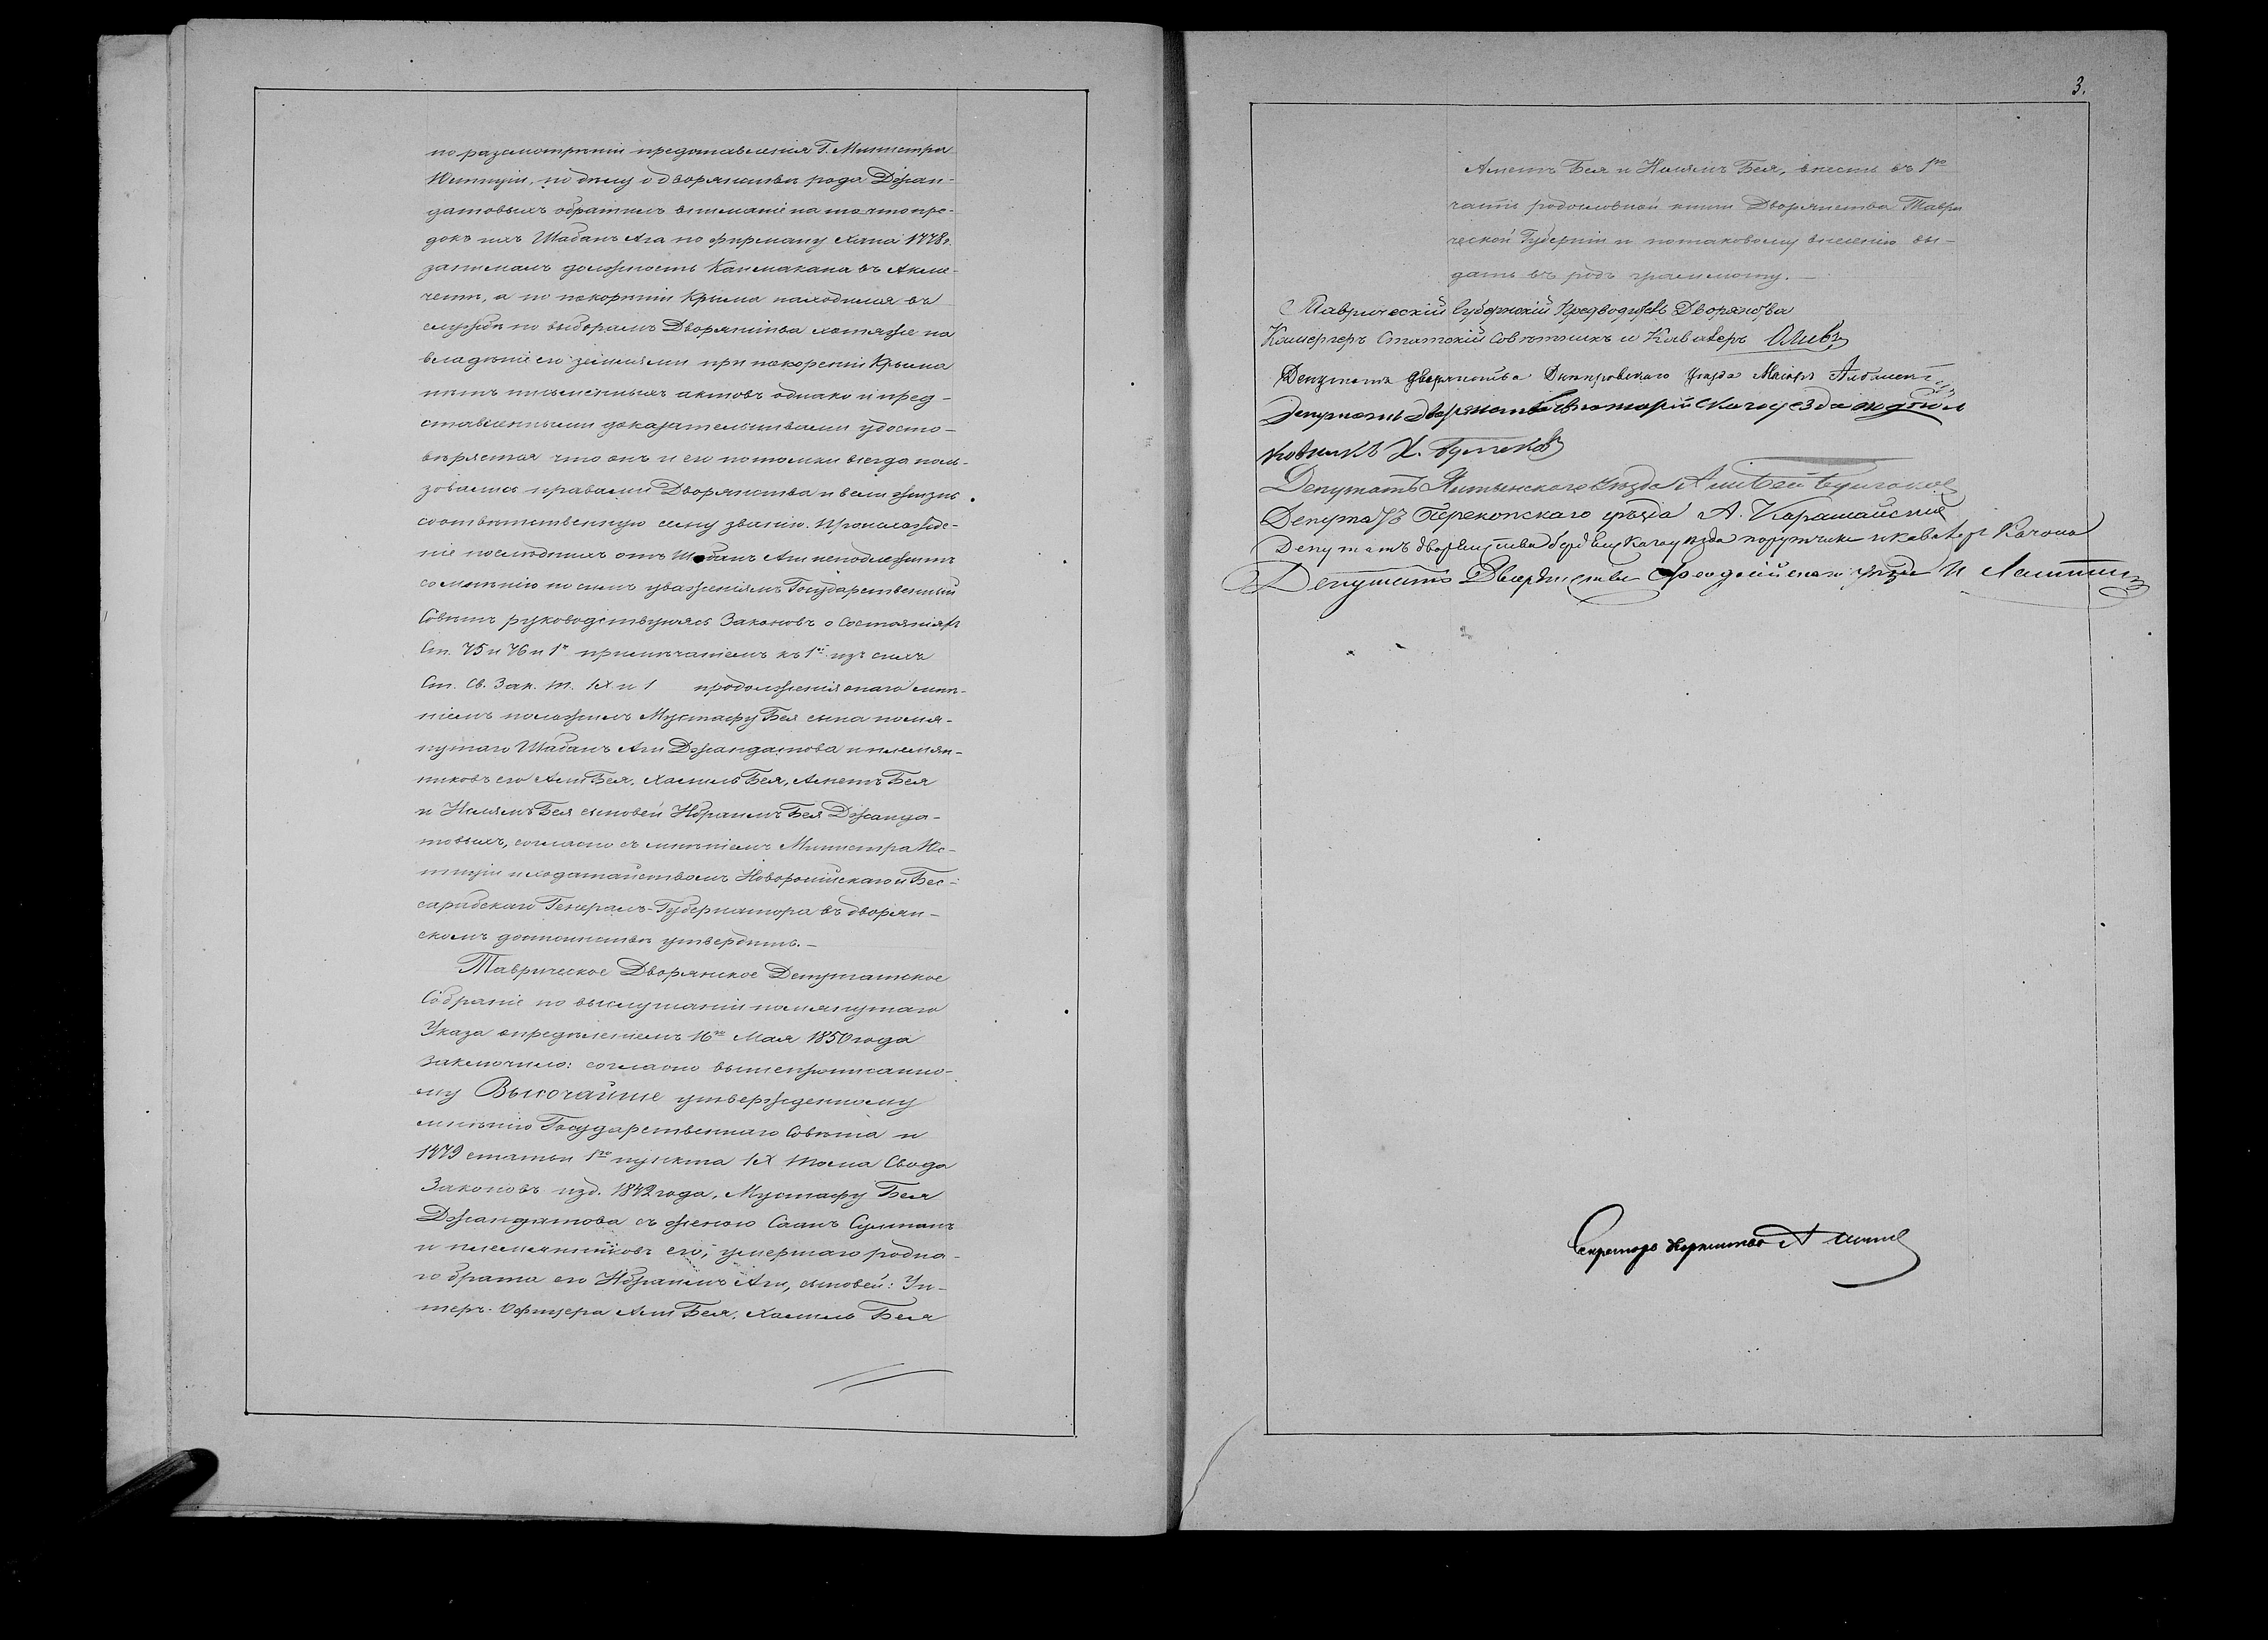 по разсмотрѣніи представленія Г. Министра
Юстиціи, по дѣлу о дворянствѣ рода Джан-
датовыхъ обратилъ вниманіе на то что пре-
докъ ихъ Шабанъ Ага по фирману Хана 1778 г.
занималъ должность Каймакана въ Акме-
четѣ, а по покореніи Крыма находился въ
службѣ по выборамъ Дворянства хотяже на
владѣніе землями при покореніи Крыма
нѣтъ письменныхъ актовъ однако и пред-
ставленными доказательствами удосто-
вѣряется что онъ и его потомки всегда поль-
зовались правами Дворянства и вели жизнь
соотвѣтственную сему званію. Происхожде-
ніе послѣднихъ отъ Шабанъ Аги неподлежитъ
сомнѣнію по симъ уваженіямъ Государственный
Совѣтъ руководствуясь Законовъ о Состояніяхъ
Ст. 75 и 76 и 1ъ примѣчаніемъ къ 1й изъ сихъ
Ст. Св. Зак. т. IX и 1 продолженія онаго мнѣ-
ніемъ положилъ Мустафу Бея сына помя-
нутаго Шабанъ Аги Джандатова и племян-
никовъ его Али Бея, Халиль Бея, Аметъ Бея
и Ислямъ Бея сыновей Ибраимъ Бея Джанда-
товыхъ, согласно съ мнѣніемъ Министра Юс-
тиціи и ходатайствомъ Новоросійскаго и Бес-
сарабскаго Генералъ-Губернатора въ дворян-
скомъ достоинствѣ утвердить.—
Таврическое Дворянское Депутатское
Собраніе по выслушаніи помянутаго
Указа опредѣленіемъ 16го Мая 1850 года
заключило: согласно вышепрописанно-
му Высочайше утвержденному
мнѣнію Государственнаго Совѣта и
1479 статьи 1го пункта IX тома Свода
Законовъ изд. 1842 года, Мустафу Бея
Джандатова съ женою Султанъ
и племянниковъ его, умершаго родна-
го брата его Ибраимъ Аги, сыновей: Ун-
теръ-Офицера Али Бея, Халиль Бея
3.
Аметъ Бея и Ислямъ Бея, внесть въ 1ю
часть родословной книги Дворянства Таври
ческой Губерніи и потаковому внесенію вы-
дать въ родъ грамоту.—
Таврическій Губернскій Предводитель Дворянства
Камергеръ Статскій Совѣтникъ и Кавалеръ Оливъ
Депутатъ дворянства Днѣпровскаго уѣзда Маіоръ
Депутатъ дворянства Евпаторійскаго уезда подпол
ковникъ
Депутатъ Ялтынскаго Уѣзда Али Бей Булгаковъ
Депутатъ Перекопскаго уѣзда А. Карашайскій
Депутатъ дворянства Бердянскаго уѣзда поручикъ и кавалеръ
Депутатъ Дворянства Феодосійскаго уѣзда
Секретарь Дворянства А